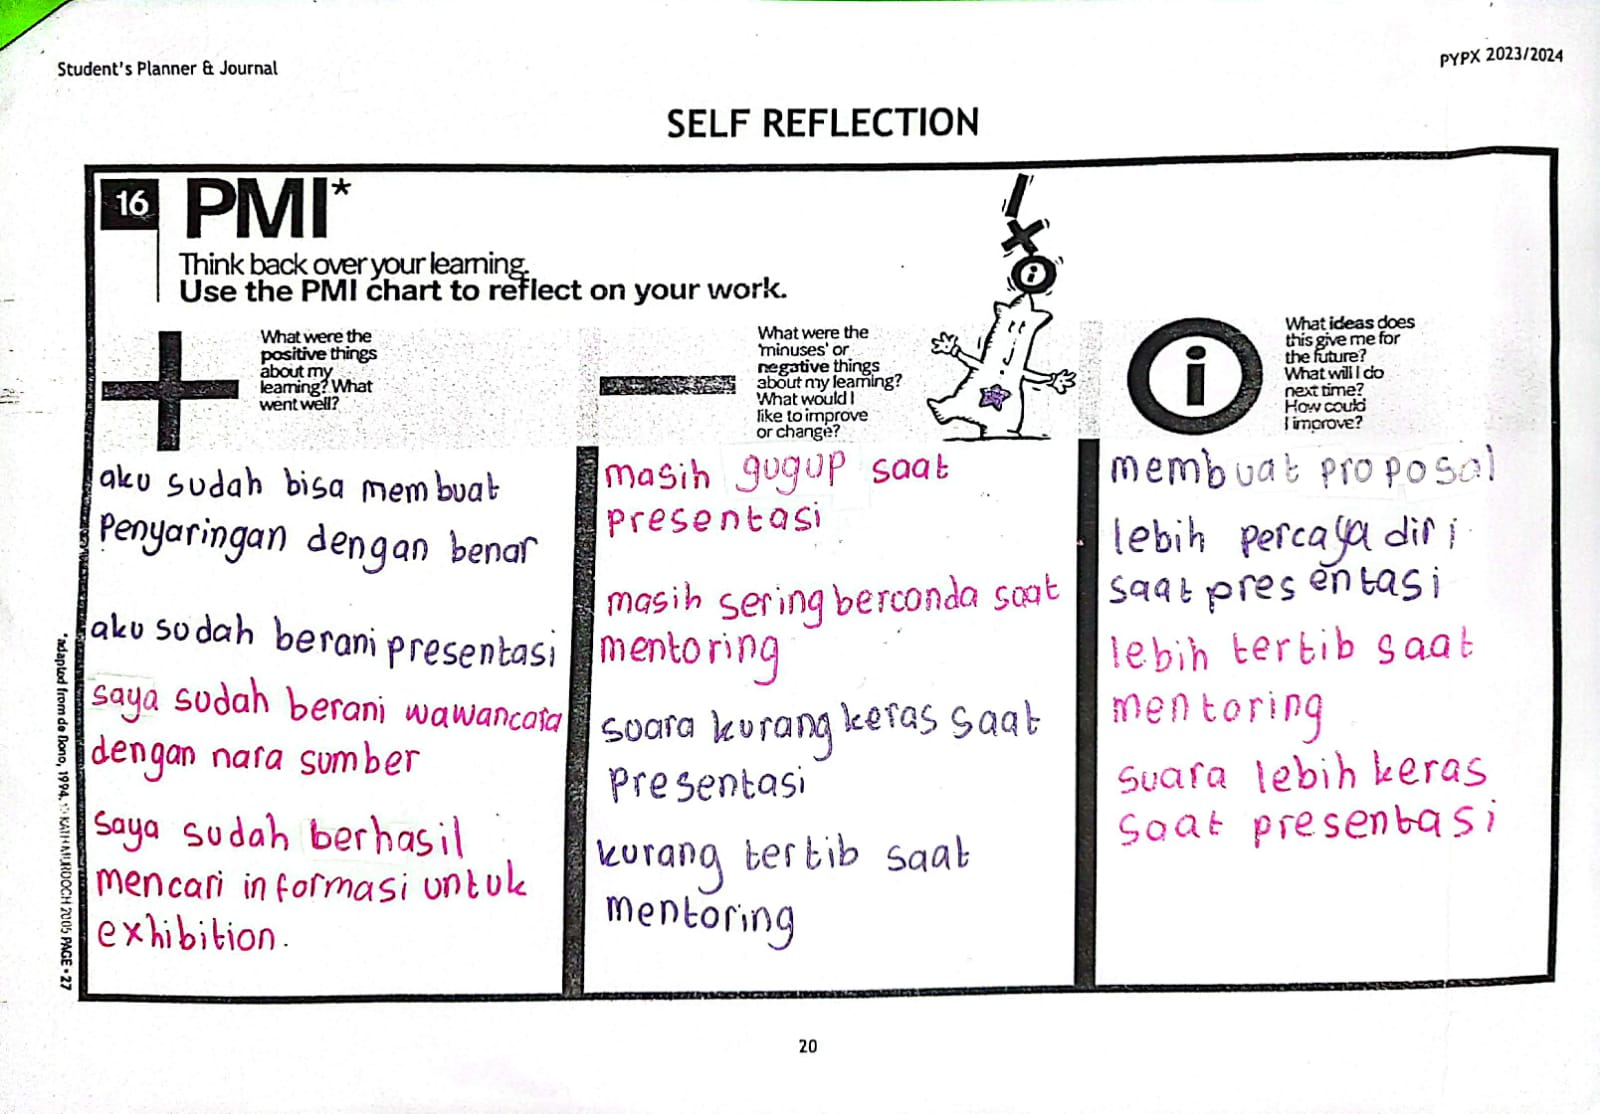 Student's Planner & Journal
PYPX 2023/2024
SELF REFLECTION
16
PMI*
Think back over your learning.
Use the PMI chart to reflect on your work.
What were the
positive things
about my
learning? What
went well?
aku sudah bisa membuat
Penyaringan dengan benar
aku sudah berani presentasi
saya sudah berani wawancara
dengan nara sumber
Saya sudah berhasil
mencari informasi untuk
exhibition.
What were the
'minuses' or
negative things
about my learning?
What would I
like to improve
or change?
masih gugup saat
presentasi
masih sering berconda saat
mentoring
suara kurang keras saat
Presentasi
kurang tertib saat
mentoring
i
i
What ideas does
this give me for
the future?
What will I do
next time?
How could
I improve?
membuat proposal
lebih percaya diri
saat presentasi
lebih tertib saat
mentoring
suara lebih keras
saat presentasi
*adapted from de Bono, 1994. © KATH MURDOCH 2005 PAGE • 27
20